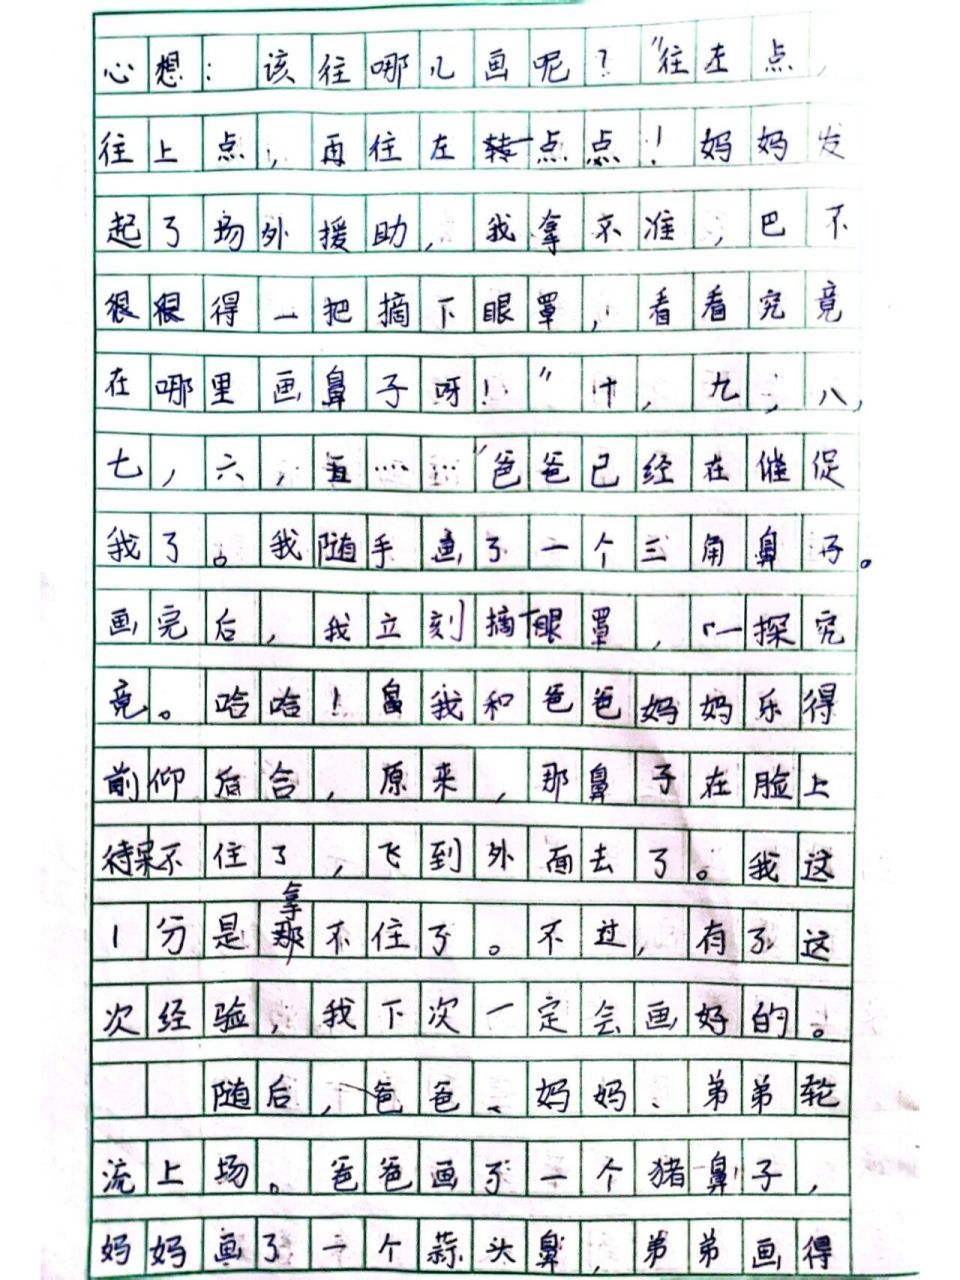 心想：该往哪儿画呢？"往左点，
往上点，再住左转一点点！妈妈发
起了场外援助，我拿不准，巴不
很很得一把摘下眼罩，看看究竟
在哪里画鼻子呀！"十，九，八，
七，六，五……"爸爸已经在催促
我了。我随手画了一个三角鼻子。
画完后，我立刻摘下眼罩，一探究
竟。哈哈！我和爸爸妈妈乐得
前仰后合，原来，那鼻子在脸上
待呆不住了，飞到外面去了。我这
1分是拿不住了。不过，有了这
次经验，我下次一定会画好的。
随后，爸爸、妈妈、弟弟轮
流上场。爸爸画了一个猪鼻子，
妈妈画了一个蒜头鼻，弟弟画得